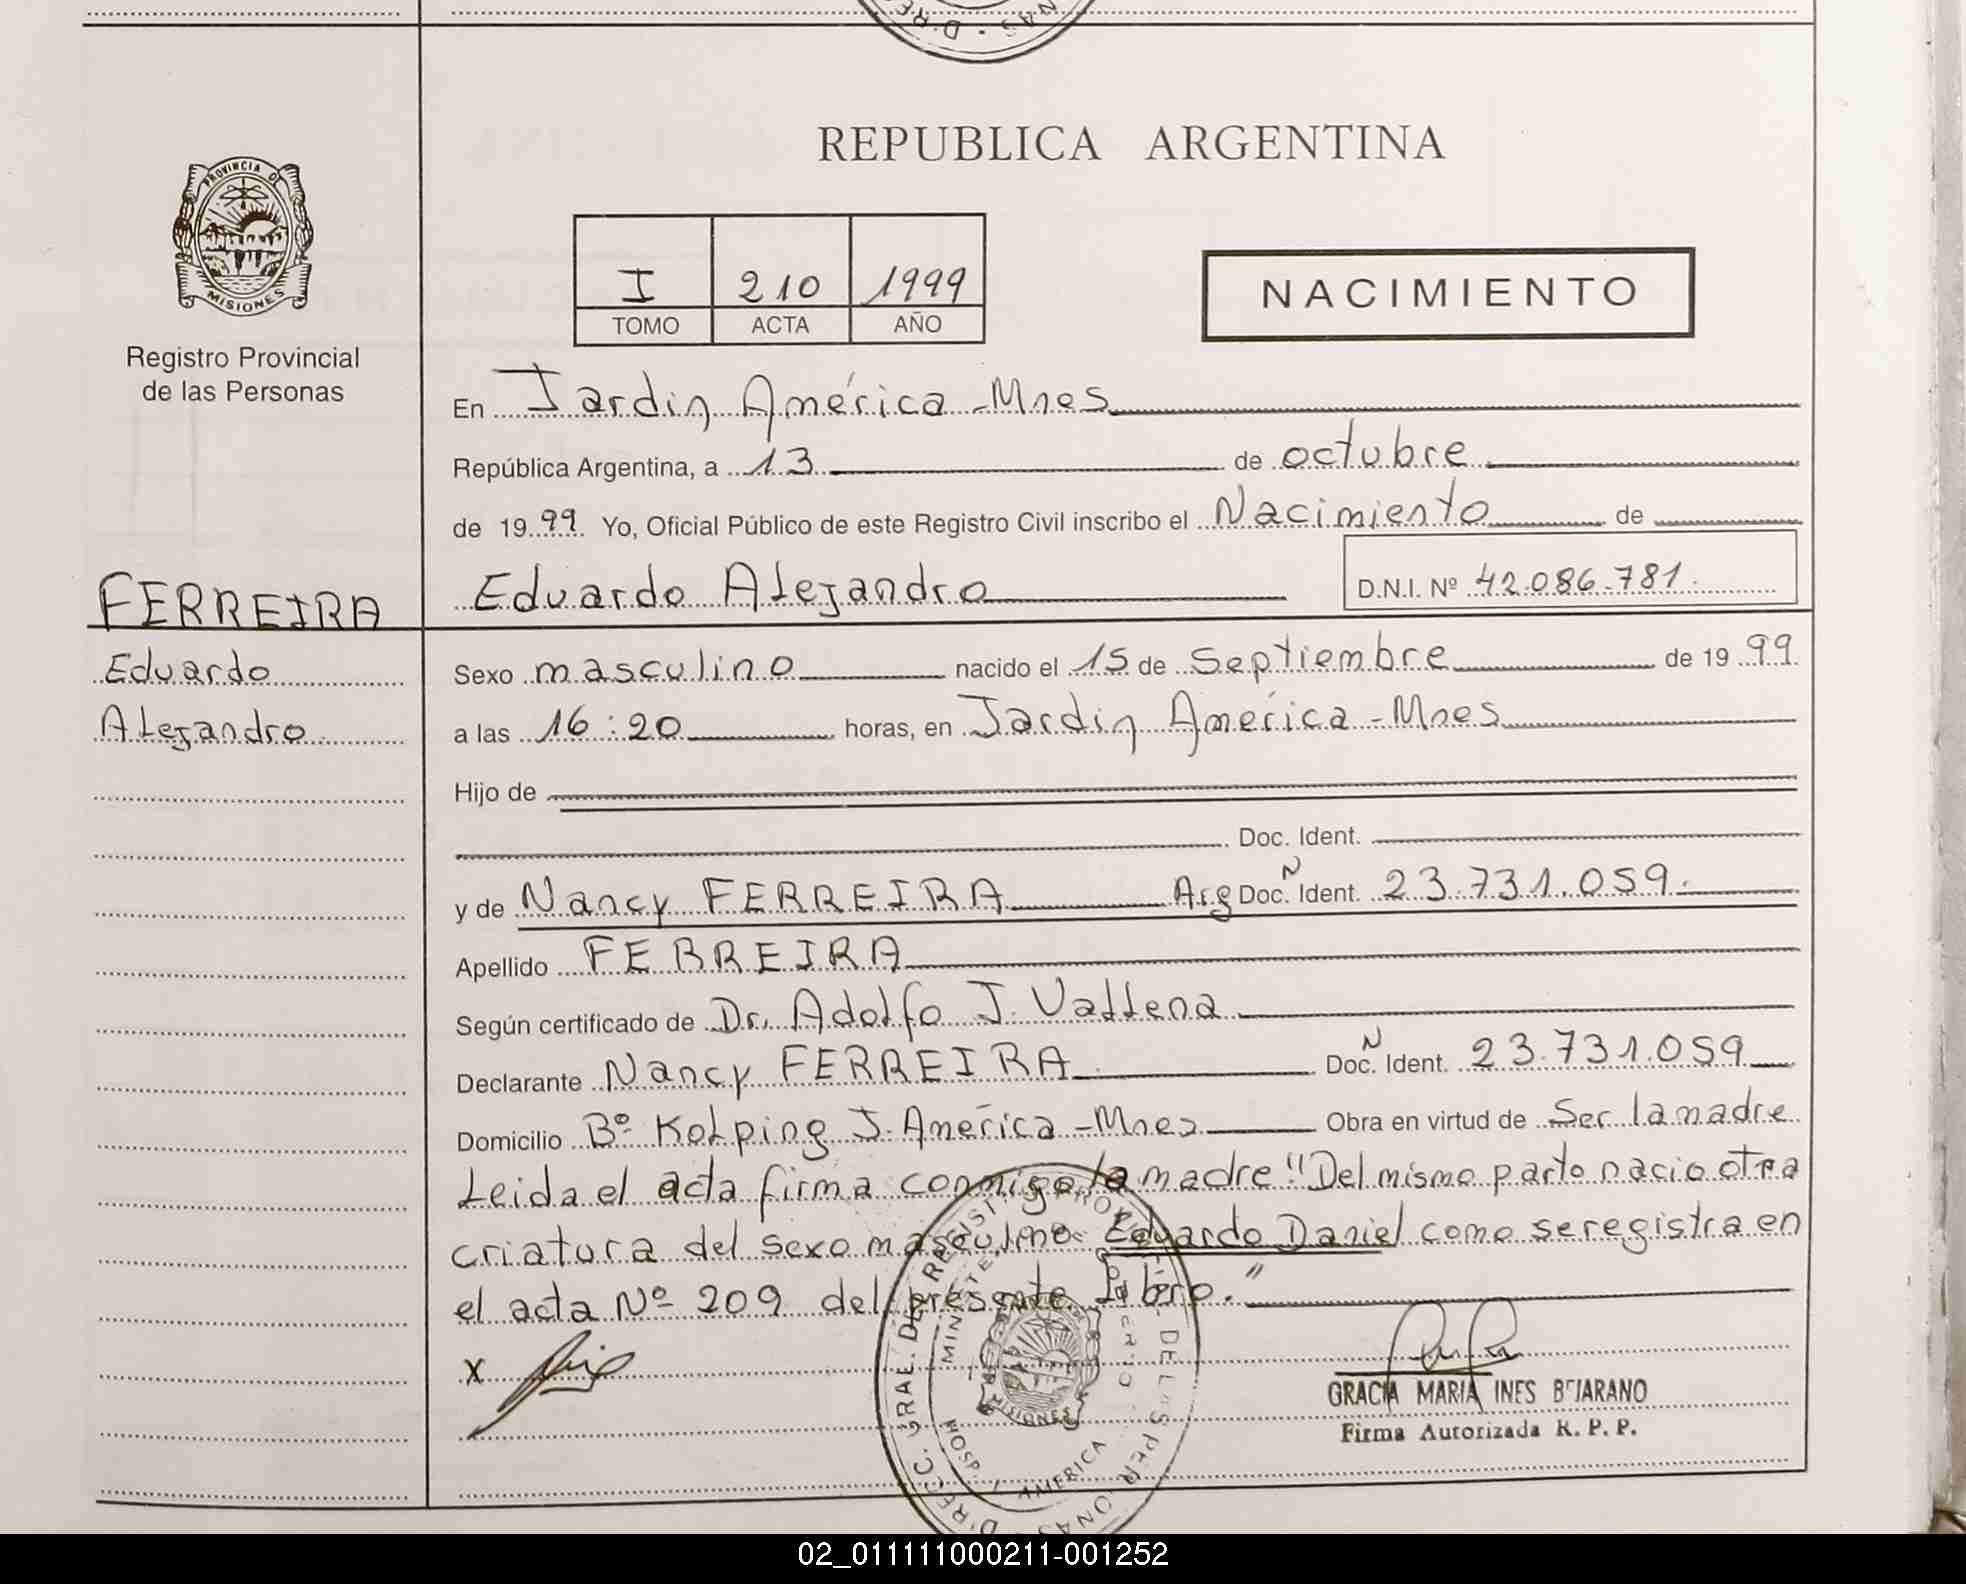 REPUBLICA ARGENTINA
PROVINCIA DE
MISIONES
Registro Provincial
de las Personas
I 210 1999
TOMO ACTA AÑO
NACIMIENTO
En Jardin América - Mnes
República Argentina, a 13 de octubre
de 19 99 Yo, Oficial Público de este Registro Civil inscribo el Nacimiento de
FERREIRA
Eduardo Alejandro D.N.I. Nº 42.086.781.
Eduardo
Sexo masculino nacido el 15 de Septiembre de 19 99
Alejandro
a las 16:20 horas, en Jardin América - Mnes
Hijo de
Doc. Ident.
y de Nancy FERREIRA Arg Doc. N Ident. 23.731.059.
Apellido FERREIRA
Según certificado de Dr. Adolfo J.
Declarante Nancy FERREIRA Doc. N Ident. 23.731.059
Domicilio Bº Kolping J. América - Mnes Obra en virtud de Ser la madre
Leida el acta firma conmigo la madre "Del mismo parto nacio otra
criatura del sexo masculino Eduardo Daniel como se registra en
el acta Nº 209 del presente libro."
X
GRACIA MARIA INES BEJARANO
Firma Autorizada R. P. P.
MISIONES
AMERICA
02_011111000211-001252